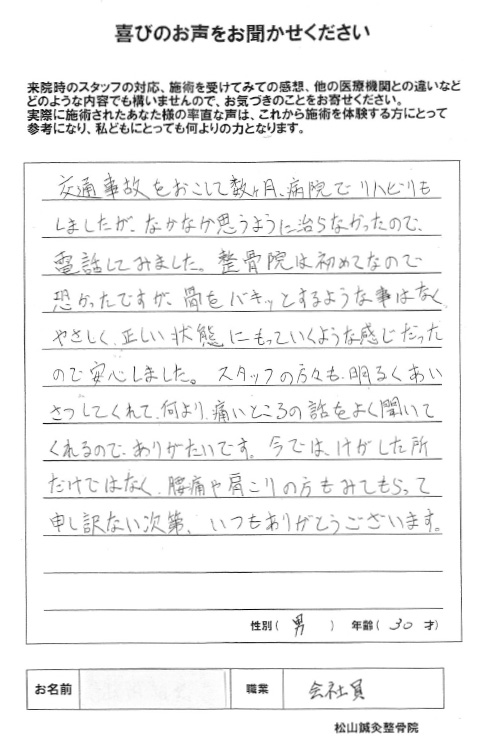 喜びのお声をお聞かせください
来院時のスタッフの対応、施術を受けてみての感想、他の医療機関との違いなど
どのような内容でも構いませんので、お気づきのことをお寄せください。
実際に施術されたあなた様の率直な声は、これから施術を体験する方にとって
参考になり、私どもにとっても何よりの力となります。
交通事故をおこして数ヶ月、病院でリハビリも
しましたが、なかなか思うように治らなかったので、
電話してみました。整骨院は初めてなので
恐かったですが、骨をバキッとするような事はなく
やさしく、正しい状態にもっていくような感じだった
ので安心しました。スタッフの方々も、明るくあい
さつしてくれて、何より、痛いところの話をよく聞いて
くれるので、ありがたいです。今では、けがした所
だけではなく、腰痛や肩こりの方もみてもらって
申し訳ない次第、いつもありがとうございます。
性別(男) 年齢(30才)
お名前 職業 会社員
松山鍼灸整骨院